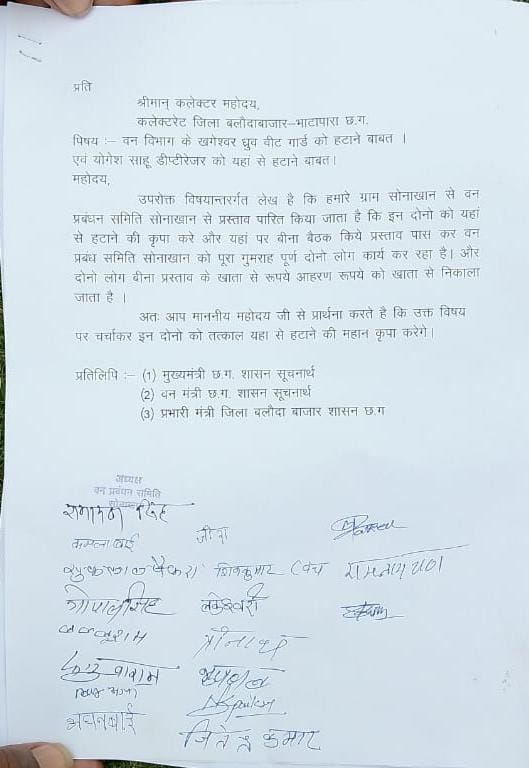 प्रति
श्रीमान् कलेक्टर महोदय,
कलेक्टरेट जिला बलौदाबाजार–भाटापारा छ.ग.
विषय :– वन विभाग के खगेश्वर ध्रुव वीट गार्ड को हटाने बाबत ।
एवं योगेश साहू डीप्टीरेजर को यहां से हटाने बाबत।
महोदय,
उपरोक्त विषयान्तर्गत लेख है कि हमारे ग्राम सोनाखान से वन
प्रबंधन समिति सोनाखान से प्रस्ताव पारित किया जाता है कि इन दोनो को यहां
से हटाने की कृपा करे और यहां पर बीना बैठक किये प्रस्ताव पास कर वन
प्रबंध समिति सोनाखान को पूरा गुमराह पूर्ण दोनो लोग कार्य कर रहा है। और
दोनो लोग बीना प्रस्ताव के खाता से रूपये आहरण रूपये को खाता से निकाला
जाता है ।
अतः आप माननीय महोदय जी से प्रार्थना करते है कि उक्त विषय
पर चर्चाकर इन दोनो को तत्काल यहा से हटाने की महान कृपा करेगे।
प्रतिलिपि :– (1) मुख्यमंत्री छ.ग. शासन सूचनार्थ
(2) वन मंत्री छ.ग. शासन सूचनार्थ
(3) प्रभारी मंत्री जिला बलौदा बाजार शासन छ.ग
अध्यक्ष
वन प्रबंधन समिति
सिंह
कमला बाई
शिवकुमार
गोपालसिंह
जितेन्द्र कुमार